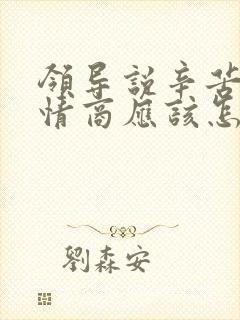 領导説辛苦
情商應該怎
劉森安